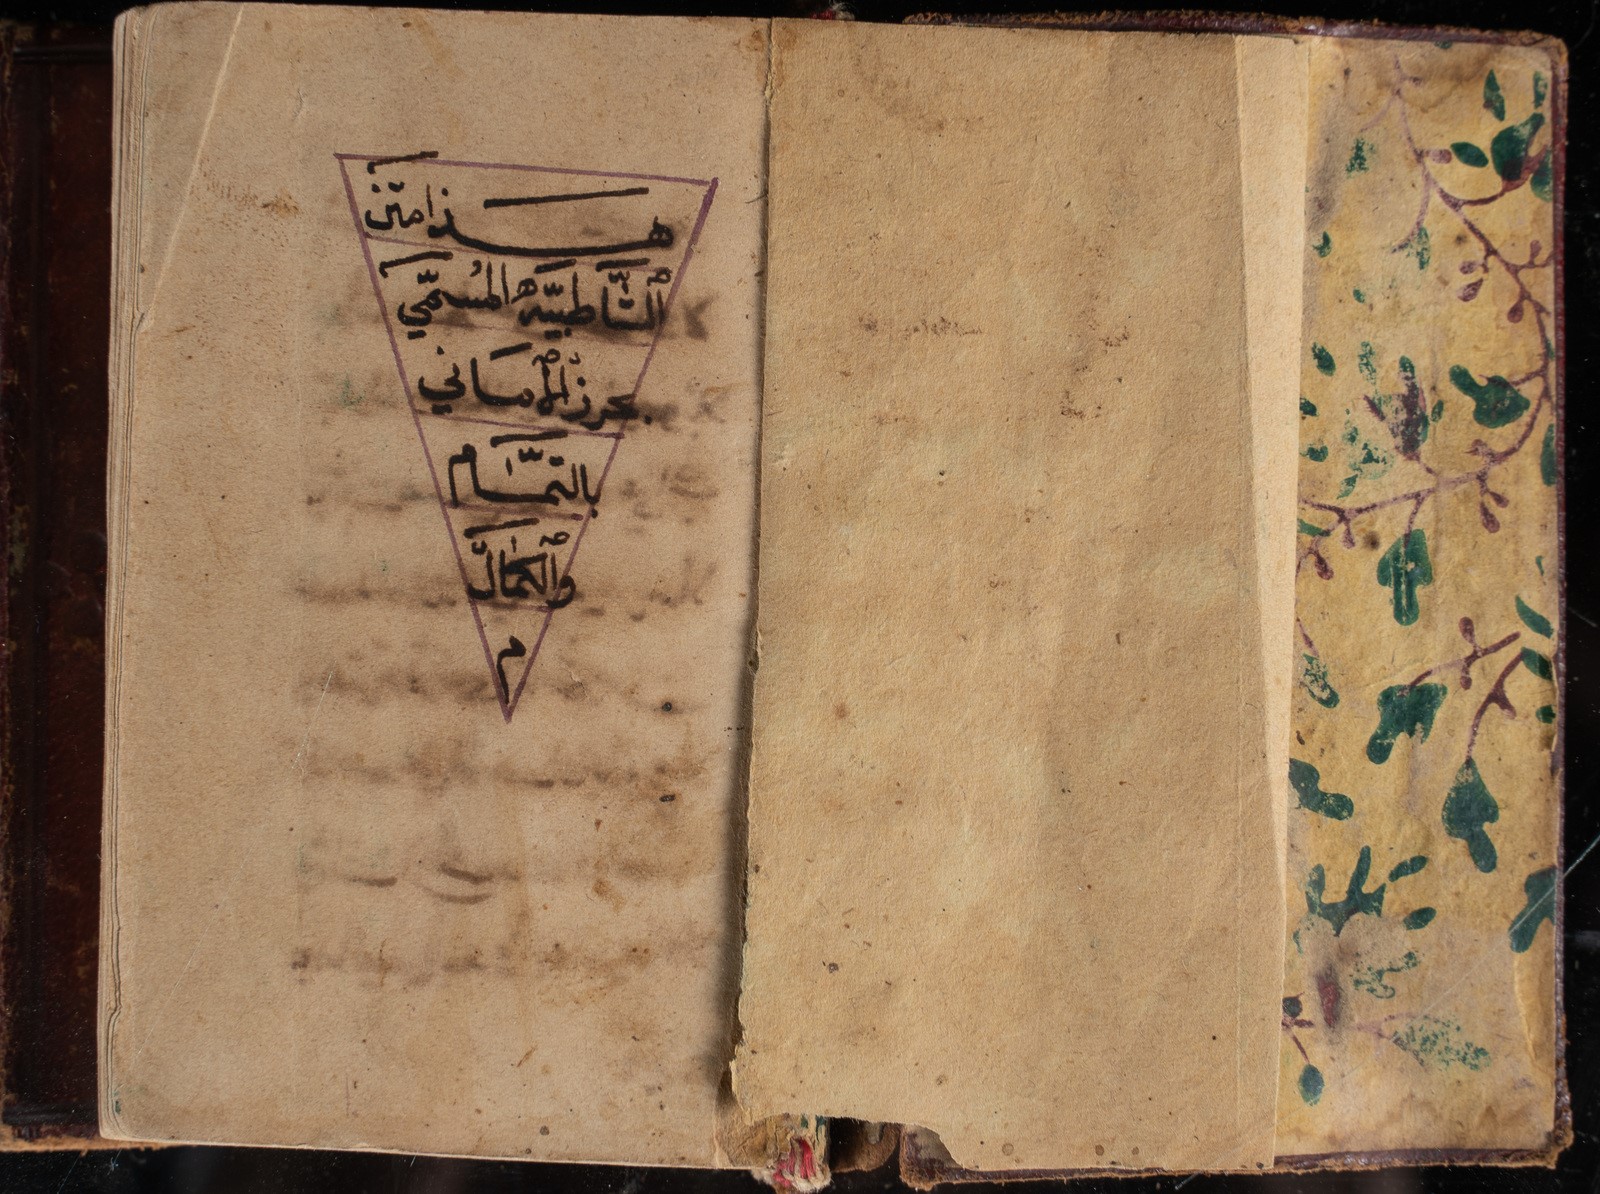 هـــذا متن
الشَّاطبيَّه المُسمّي
بحرز الأماني
بالتمَّام
والكمَال
م